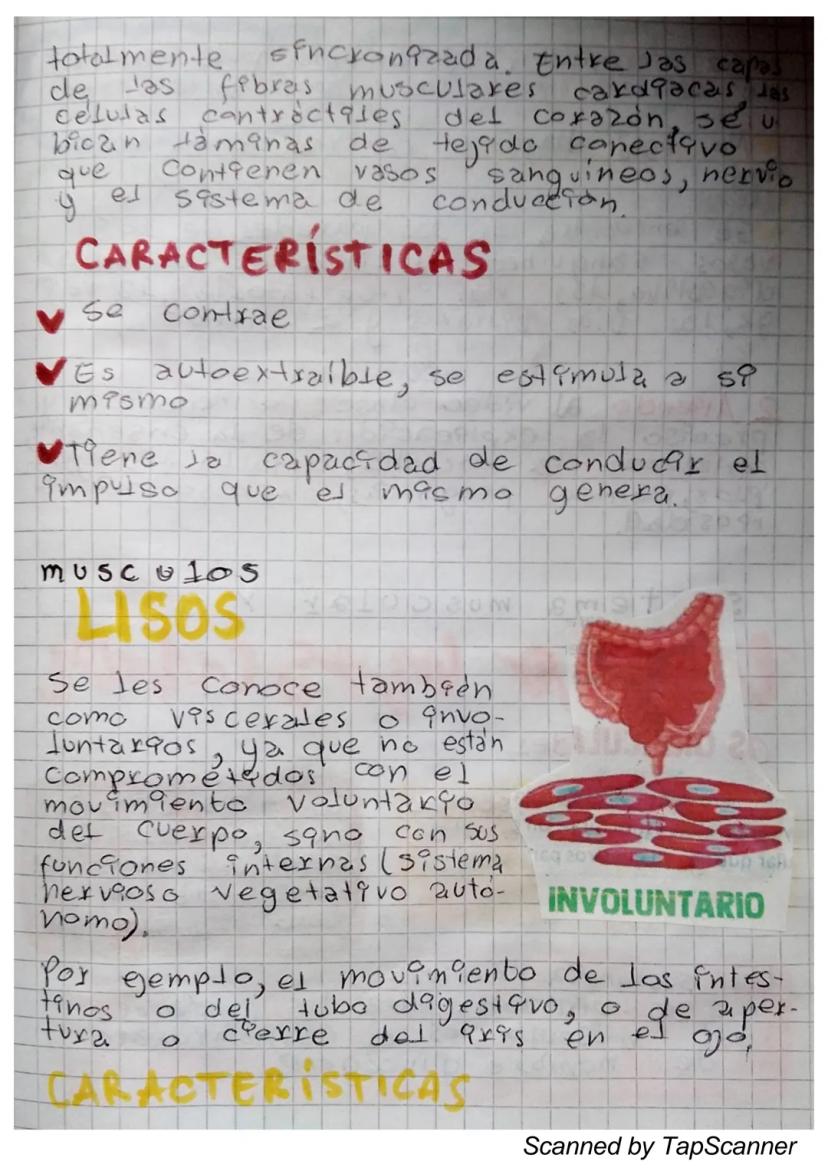 totalmente sincronizada. Entre las capas
de las fibras musculares cardiacas las
células contráctiles del corazón, se u
bican láminas de tejido conectivo
que contienen vasos sanguíneos, nervio
y el sistema de conducción.
CARACTERÍSTICAS
Se contrae
Es autoextraible, se estimula a si
mismo
Tiene la capacidad de conducir el
impulso que el mismo genera.
musculos
LISOS
Se les conoce también
como viscerales o invo-
luntarios, ya que no están
comprometidos con el
movimiento voluntario
del cuerpo, sino con sus
funciones internas (sistema
nervioso vegetativo autó-
nomo).
INVOLUNTARIO
Por ejemplo, el movimiento de los intes-
tinos o del tubo digestivo, o de aper-
tura o cierre del iris en el ojo,
CARACTERÍSTICAS
Scanned by TapScanner